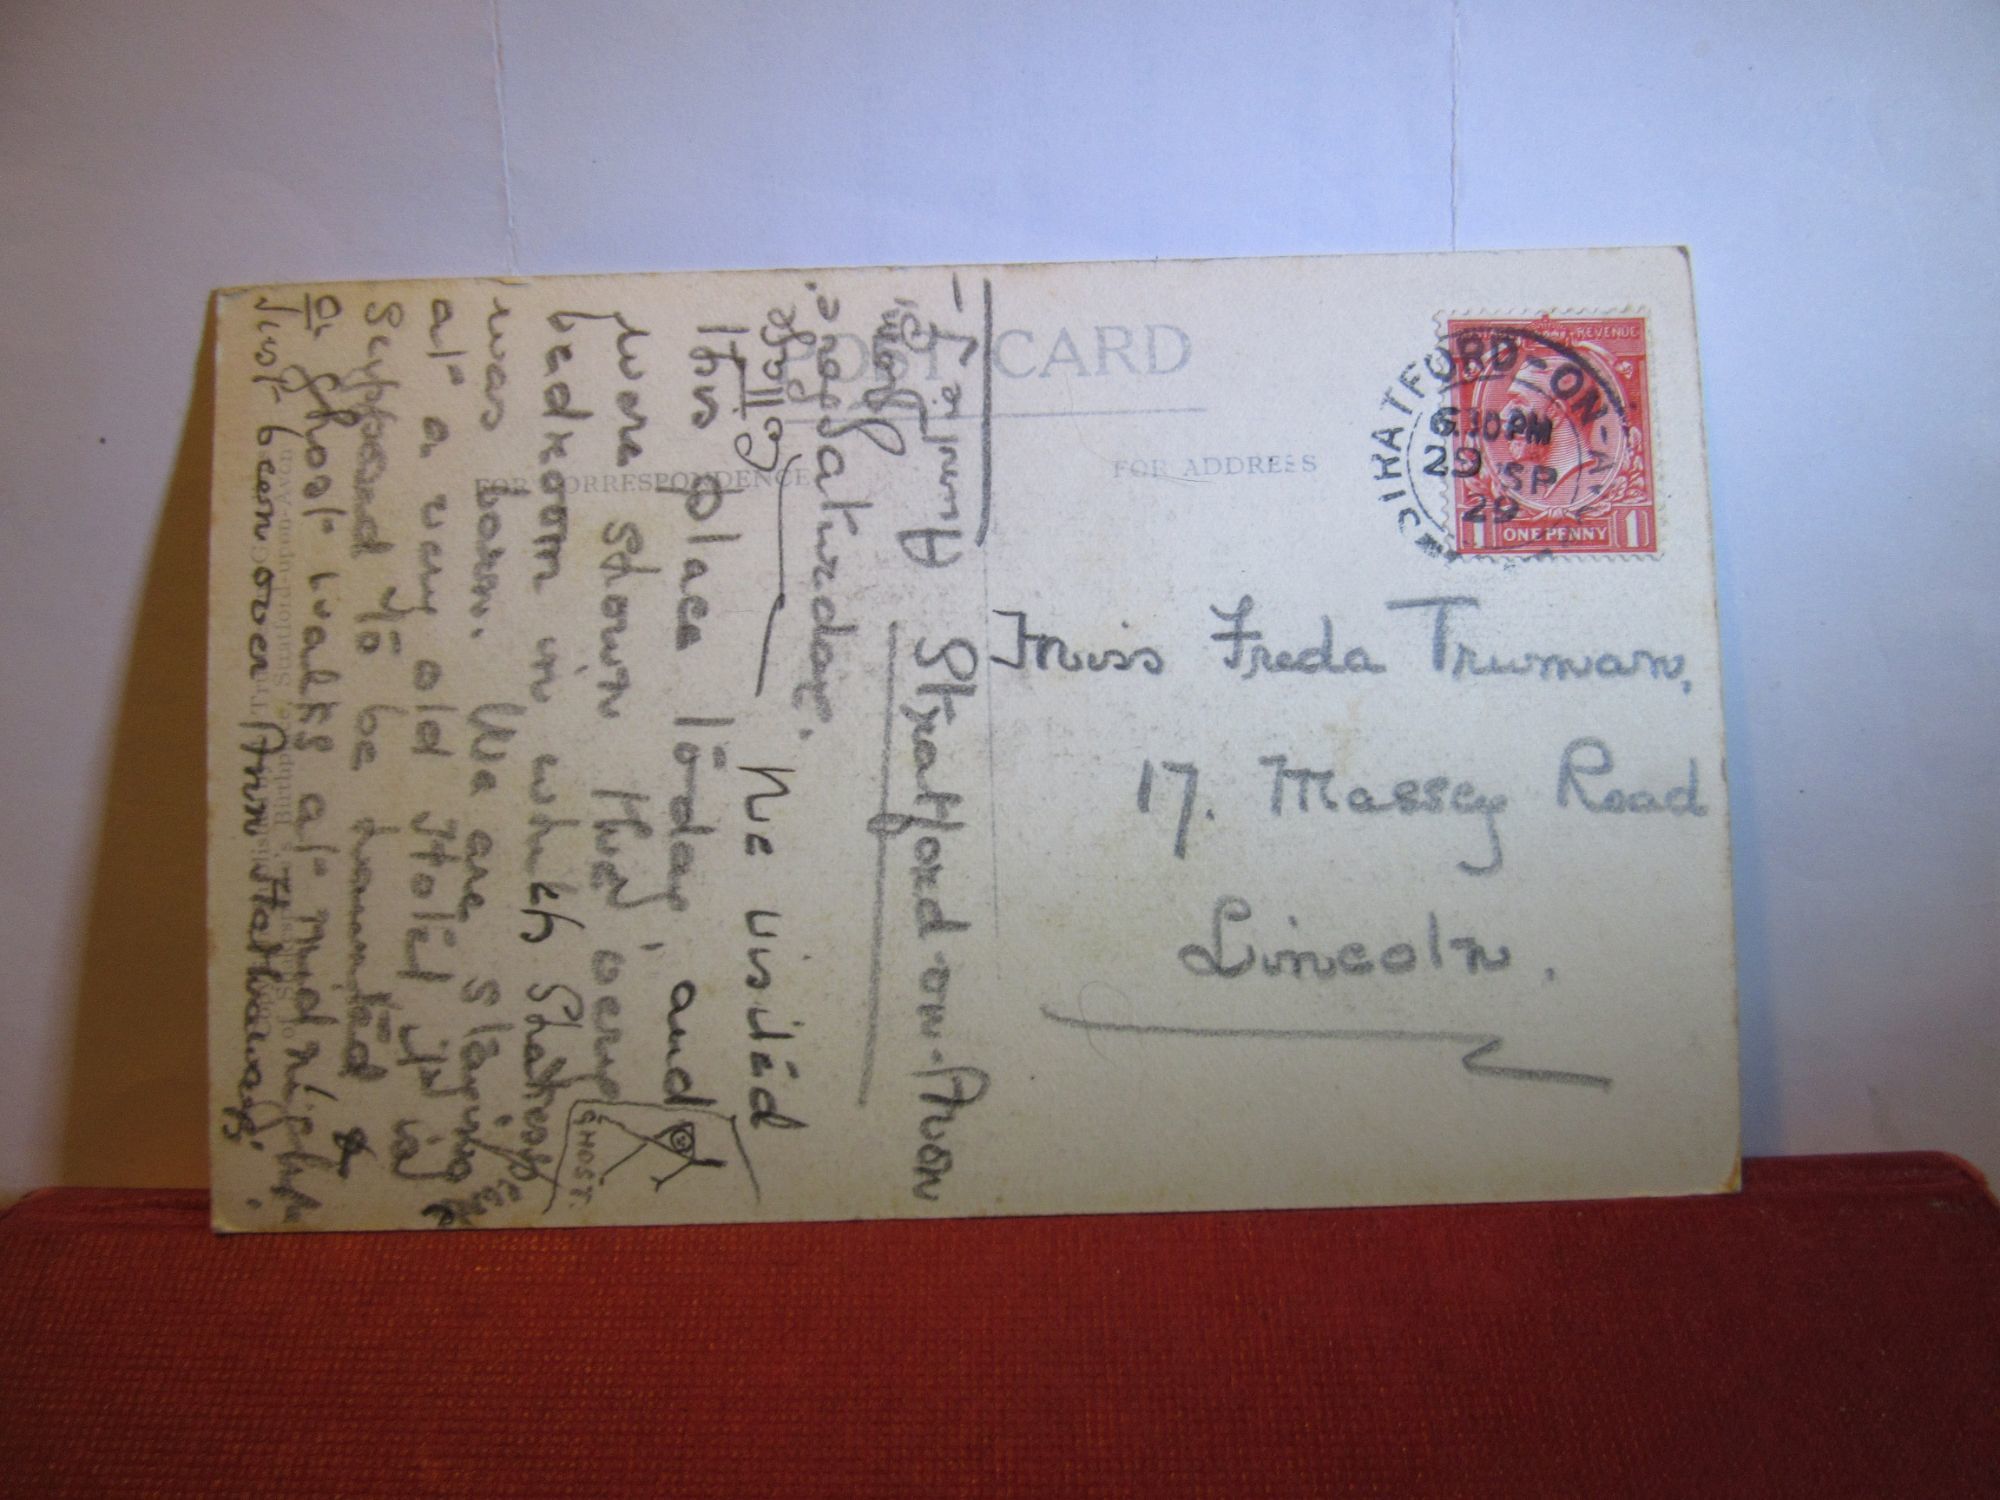 POST CARD
FOR CORRESPONDENCE
FOR ADDRESS
REVENUE
ONE PENNY
1 1
STRATFORD-ON-AV
6.30 PM
29 SP
29
Miss Freda Truman,
17. Massey Road
Lincoln.
Stratford-on-Avon
Saturday.
We visited
this place today, and
were shown the very
bedroom in which Shakespeare
was born. We are staying
at a very old Hotel it is
supposed to be haunted &
a ghost walks at midnight
Just been over Ann Hathaways,
Cottage
Love
from
Auntie F
GHOST.